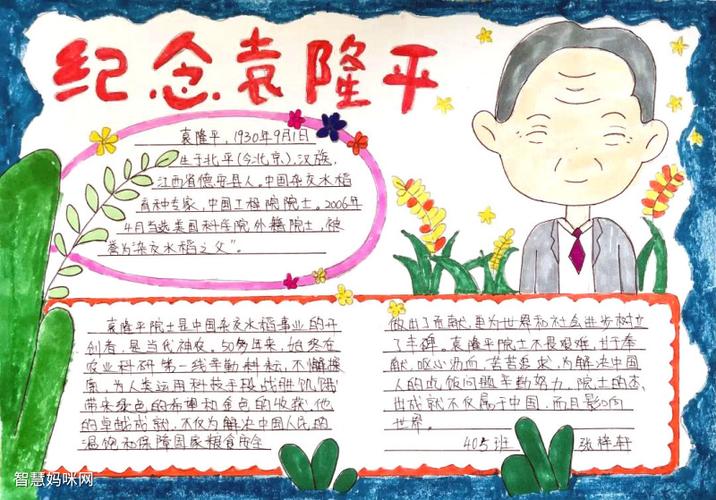 纪念袁隆平
袁隆平，1930年9月1日
生于北平（今北京），汉族，
江西省德安县人。中国杂交水稻
育种专家，中国工程院院士。2006年
4月当选美国科学院外籍院士，被
誉为“杂交水稻之父”。
袁隆平院士是中国杂交水稻事业的开
创者，是当代神农。50多年来，始终在
农业科研第一线辛勤耕耘，不懈探
索，为人类运用科技手段战胜饥饿
带来绿色的希望和金色的收获。他
的卓越成就，不仅为解决中国人民的
温饱和保障国家粮食安全
做出了贡献，更为世界和社会进步树立
了丰碑。袁隆平院士不畏艰难，甘于奉
献，呕心沥血，苦苦追求，为解决中国
人的吃饭问题辛勤努力，院士的杰
出成就不仅属于中国，而且影响
世界。
405班 张梓轩
智慧妈咪网